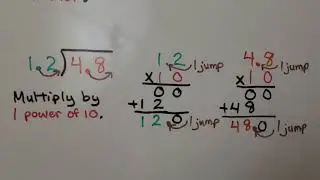 1.2)4.8
Multiply by
1 power of 10.
1.2 1 jump
x10
00
+12
12.0 1 jump
4.8 1 jump
x10
00
+48
48.0 1 jump